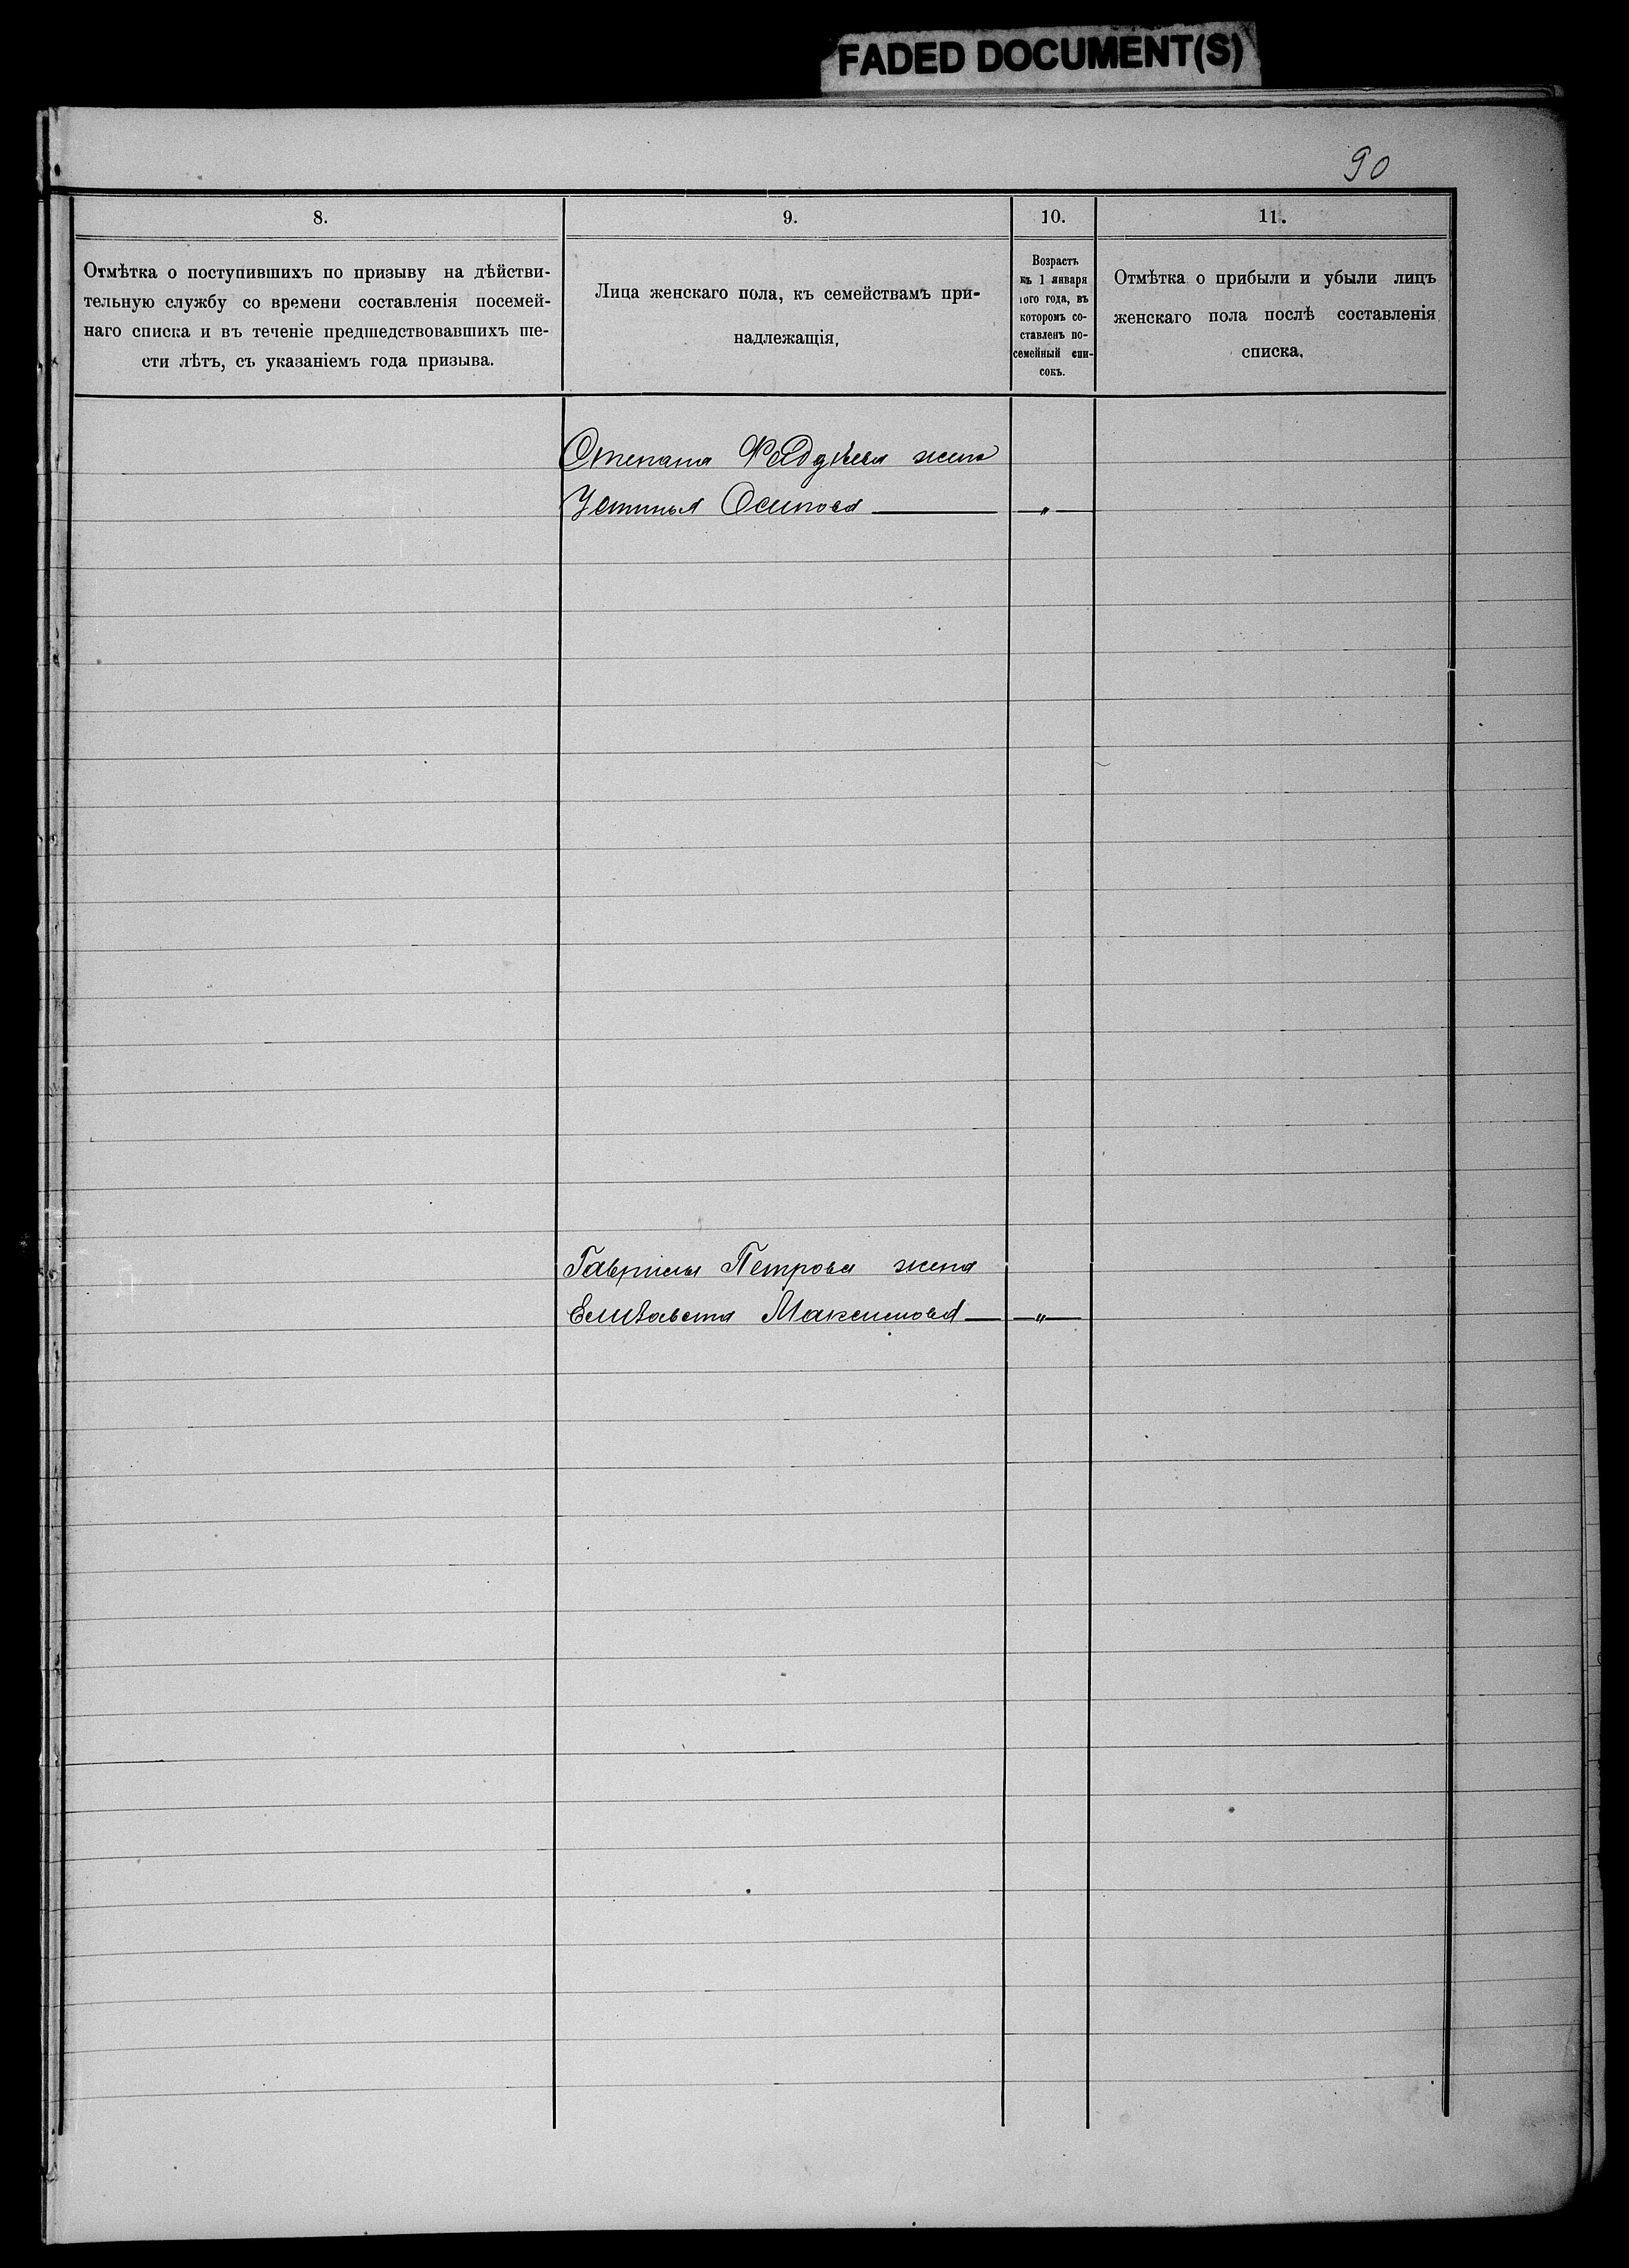 FADED DOCUMENT(S)
90
8.
9.
10.
11.
Отмѣтка о поступившихъ по призыву на дѣйстви-
тельную службу со времени составленія посемей-
наго списка и въ теченіе предшедствовавшихъ ше-
сти лѣтъ, съ указаніемъ года призыва.
Лица женскаго пола, къ семействамъ при-
надлежащія,
Возрастъ
къ 1 января
того года, въ
которомъ со-
ставленъ по-
семейный спи-
сокъ.
Отмѣтка о прибыли и убыли лицъ
женскаго пола послѣ составленія
списка.
Степана жена
Устинья Осипова — „ —
Гаврилы Петрова жена
Елизавета Максимова — „ —